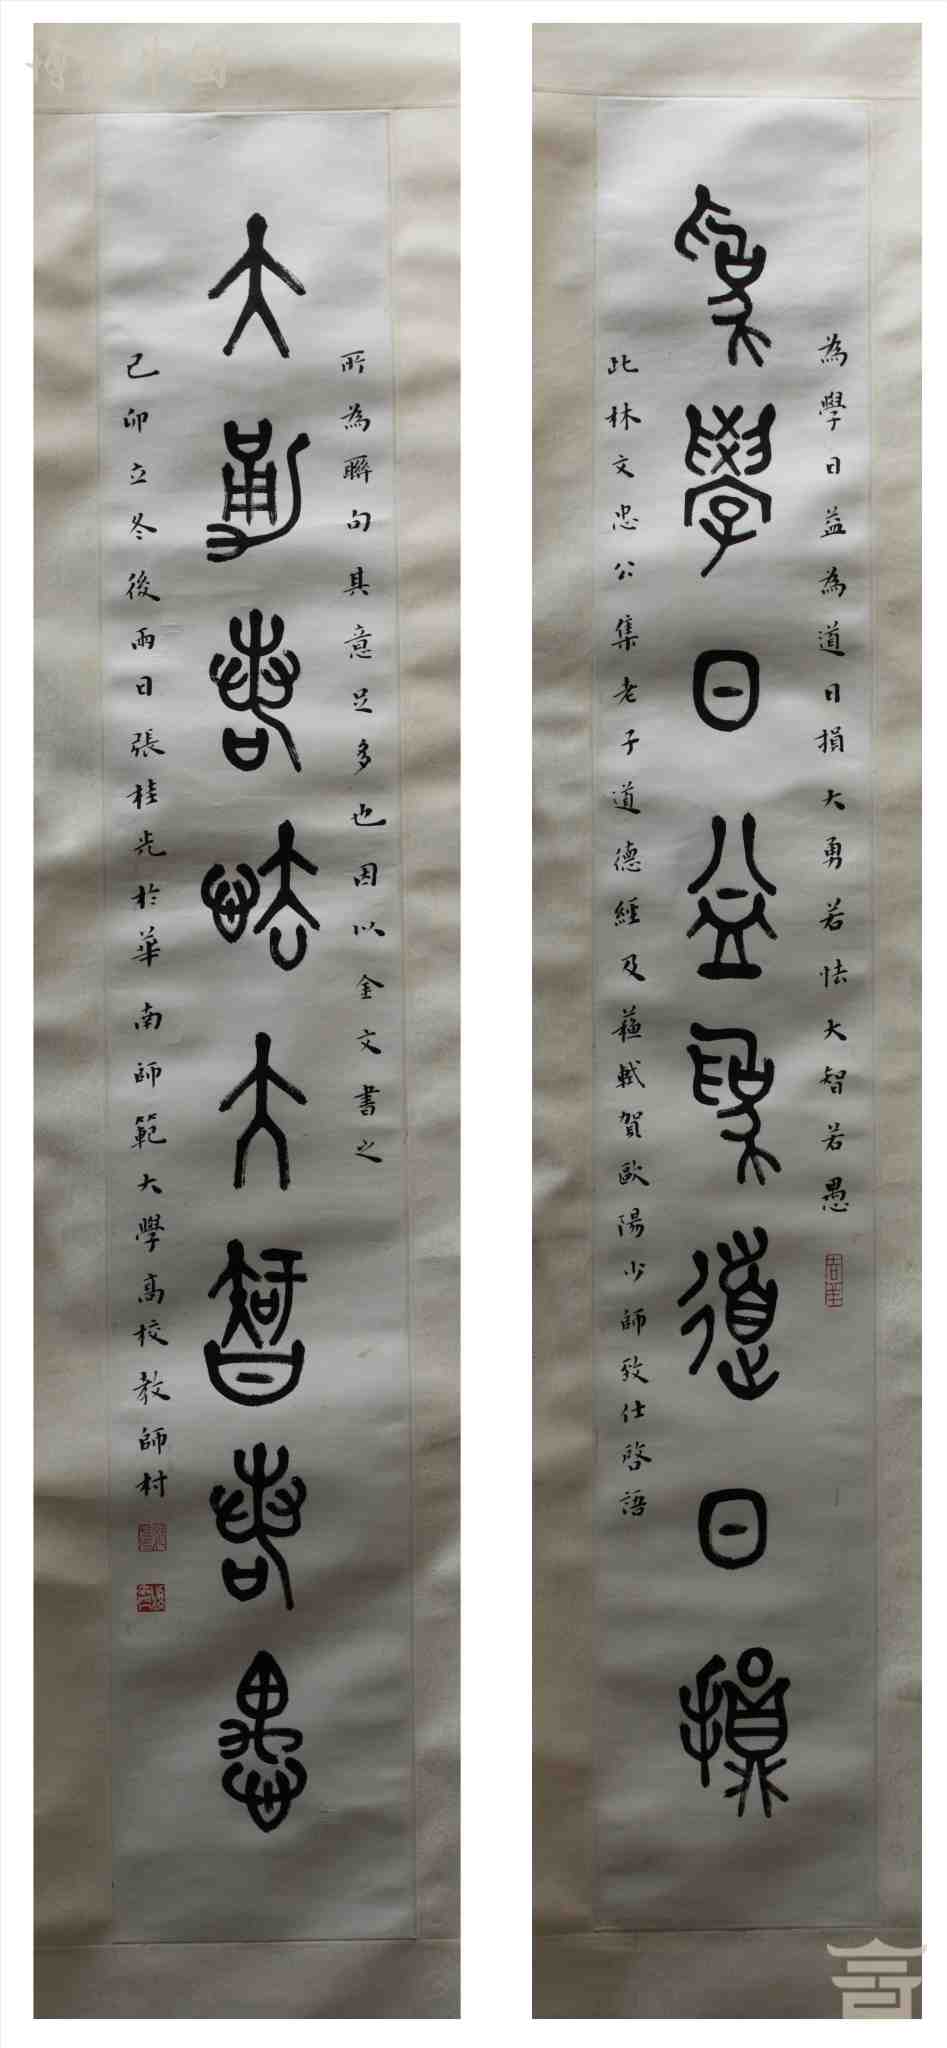 為學日益為道日損
為學日益為道日損大勇若怯大智若愚
此林文忠公集老子道德經及蘇軾賀歐陽少師致仕啓語
大勇若怯大智若愚
所為聯句其意足多也因以金文書之
己卯立冬後雨日張桂光於華南師範大學高校教師村